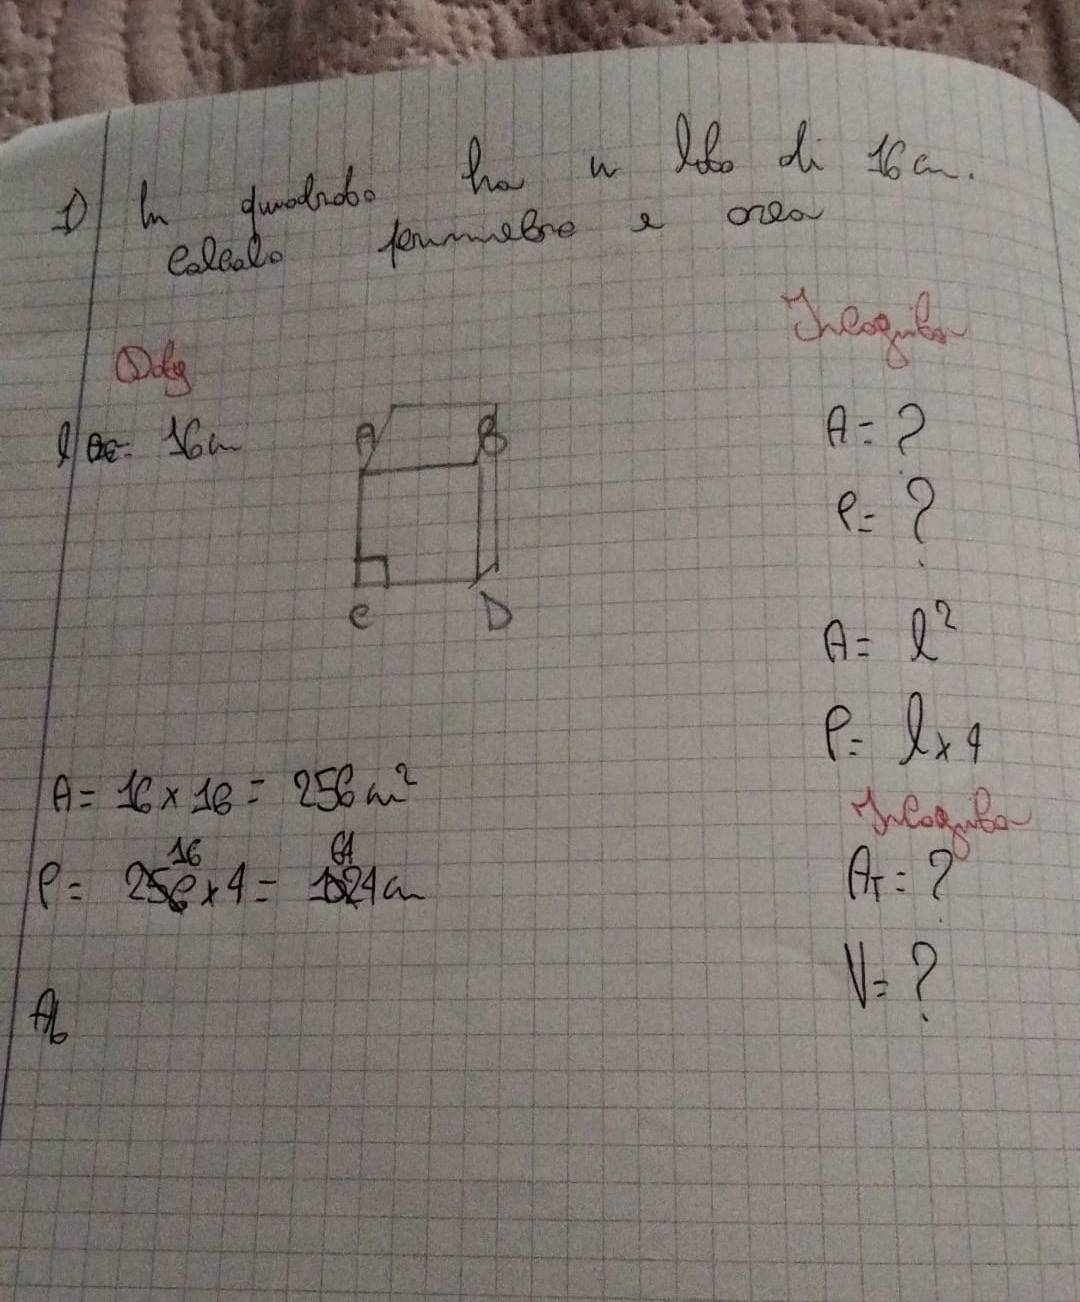 1) Un quadrato ha un lato di 16 cm.
Calcola perimetro e area
Dati
Incognita
l = 16 cm
A B
C D
A = ?
P = ?
A = l²
P = l x 4
A = 16 x 16 = 256 cm²
16 64
P = 256 x 4 = 1024 cm
Incognita
AT = ?
V = ?
Ab